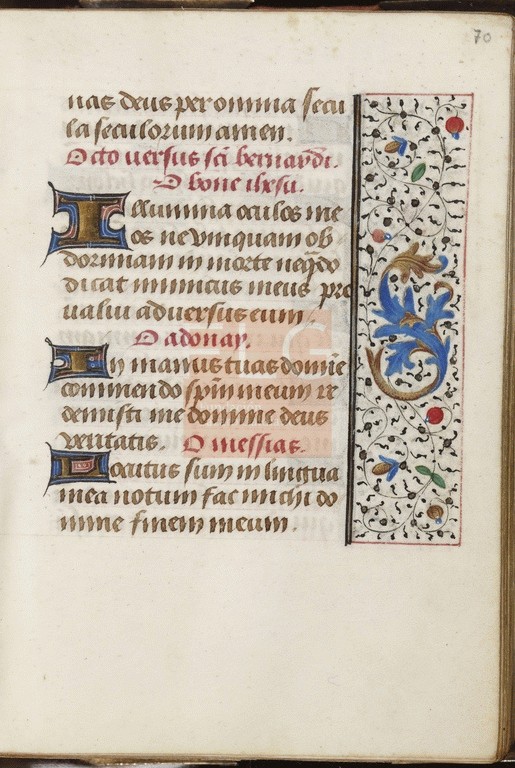 70
nas deus per omnia secu
la seculorum amen.
Octo uersus sci bernardi.
O bone ihesu.
Illumina oculos me
os ne vmquam ob
dormiam in morte neqdo
dicat inimicus meus pre
ualui aduersus eum.
O adonay.
In manus tuas domie
commendo spm meum re
demisti me domine deus
veritatis. O messias.
Locutus sum in lingua
mea notum fac michi do
mine finem meum.